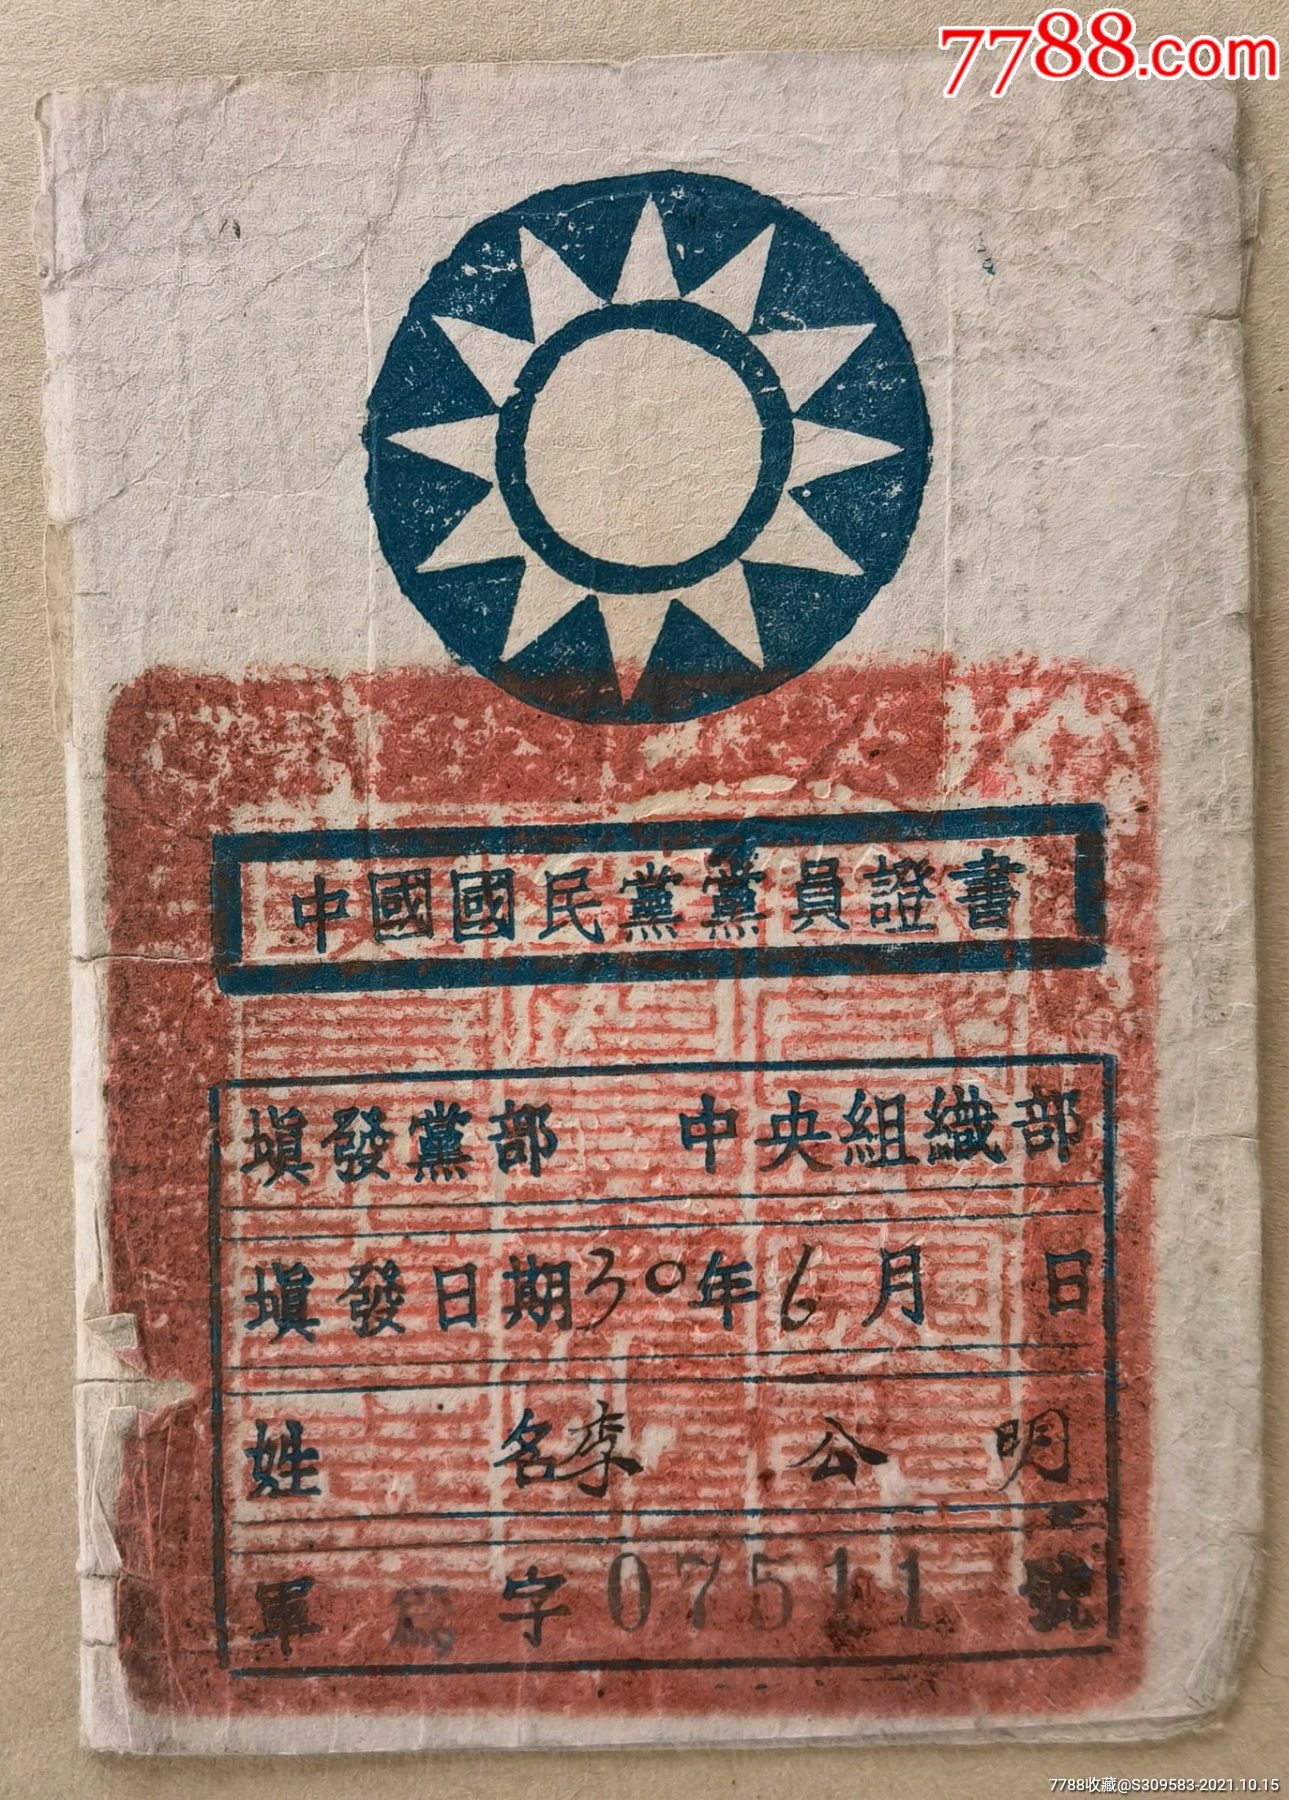 7788.com
中國國民黨黨員證書
填發黨部 中央組織部
填發日期30年6月 日
姓 名李 公 明
軍 字07511號
7788收藏@S309583-2021.10.15